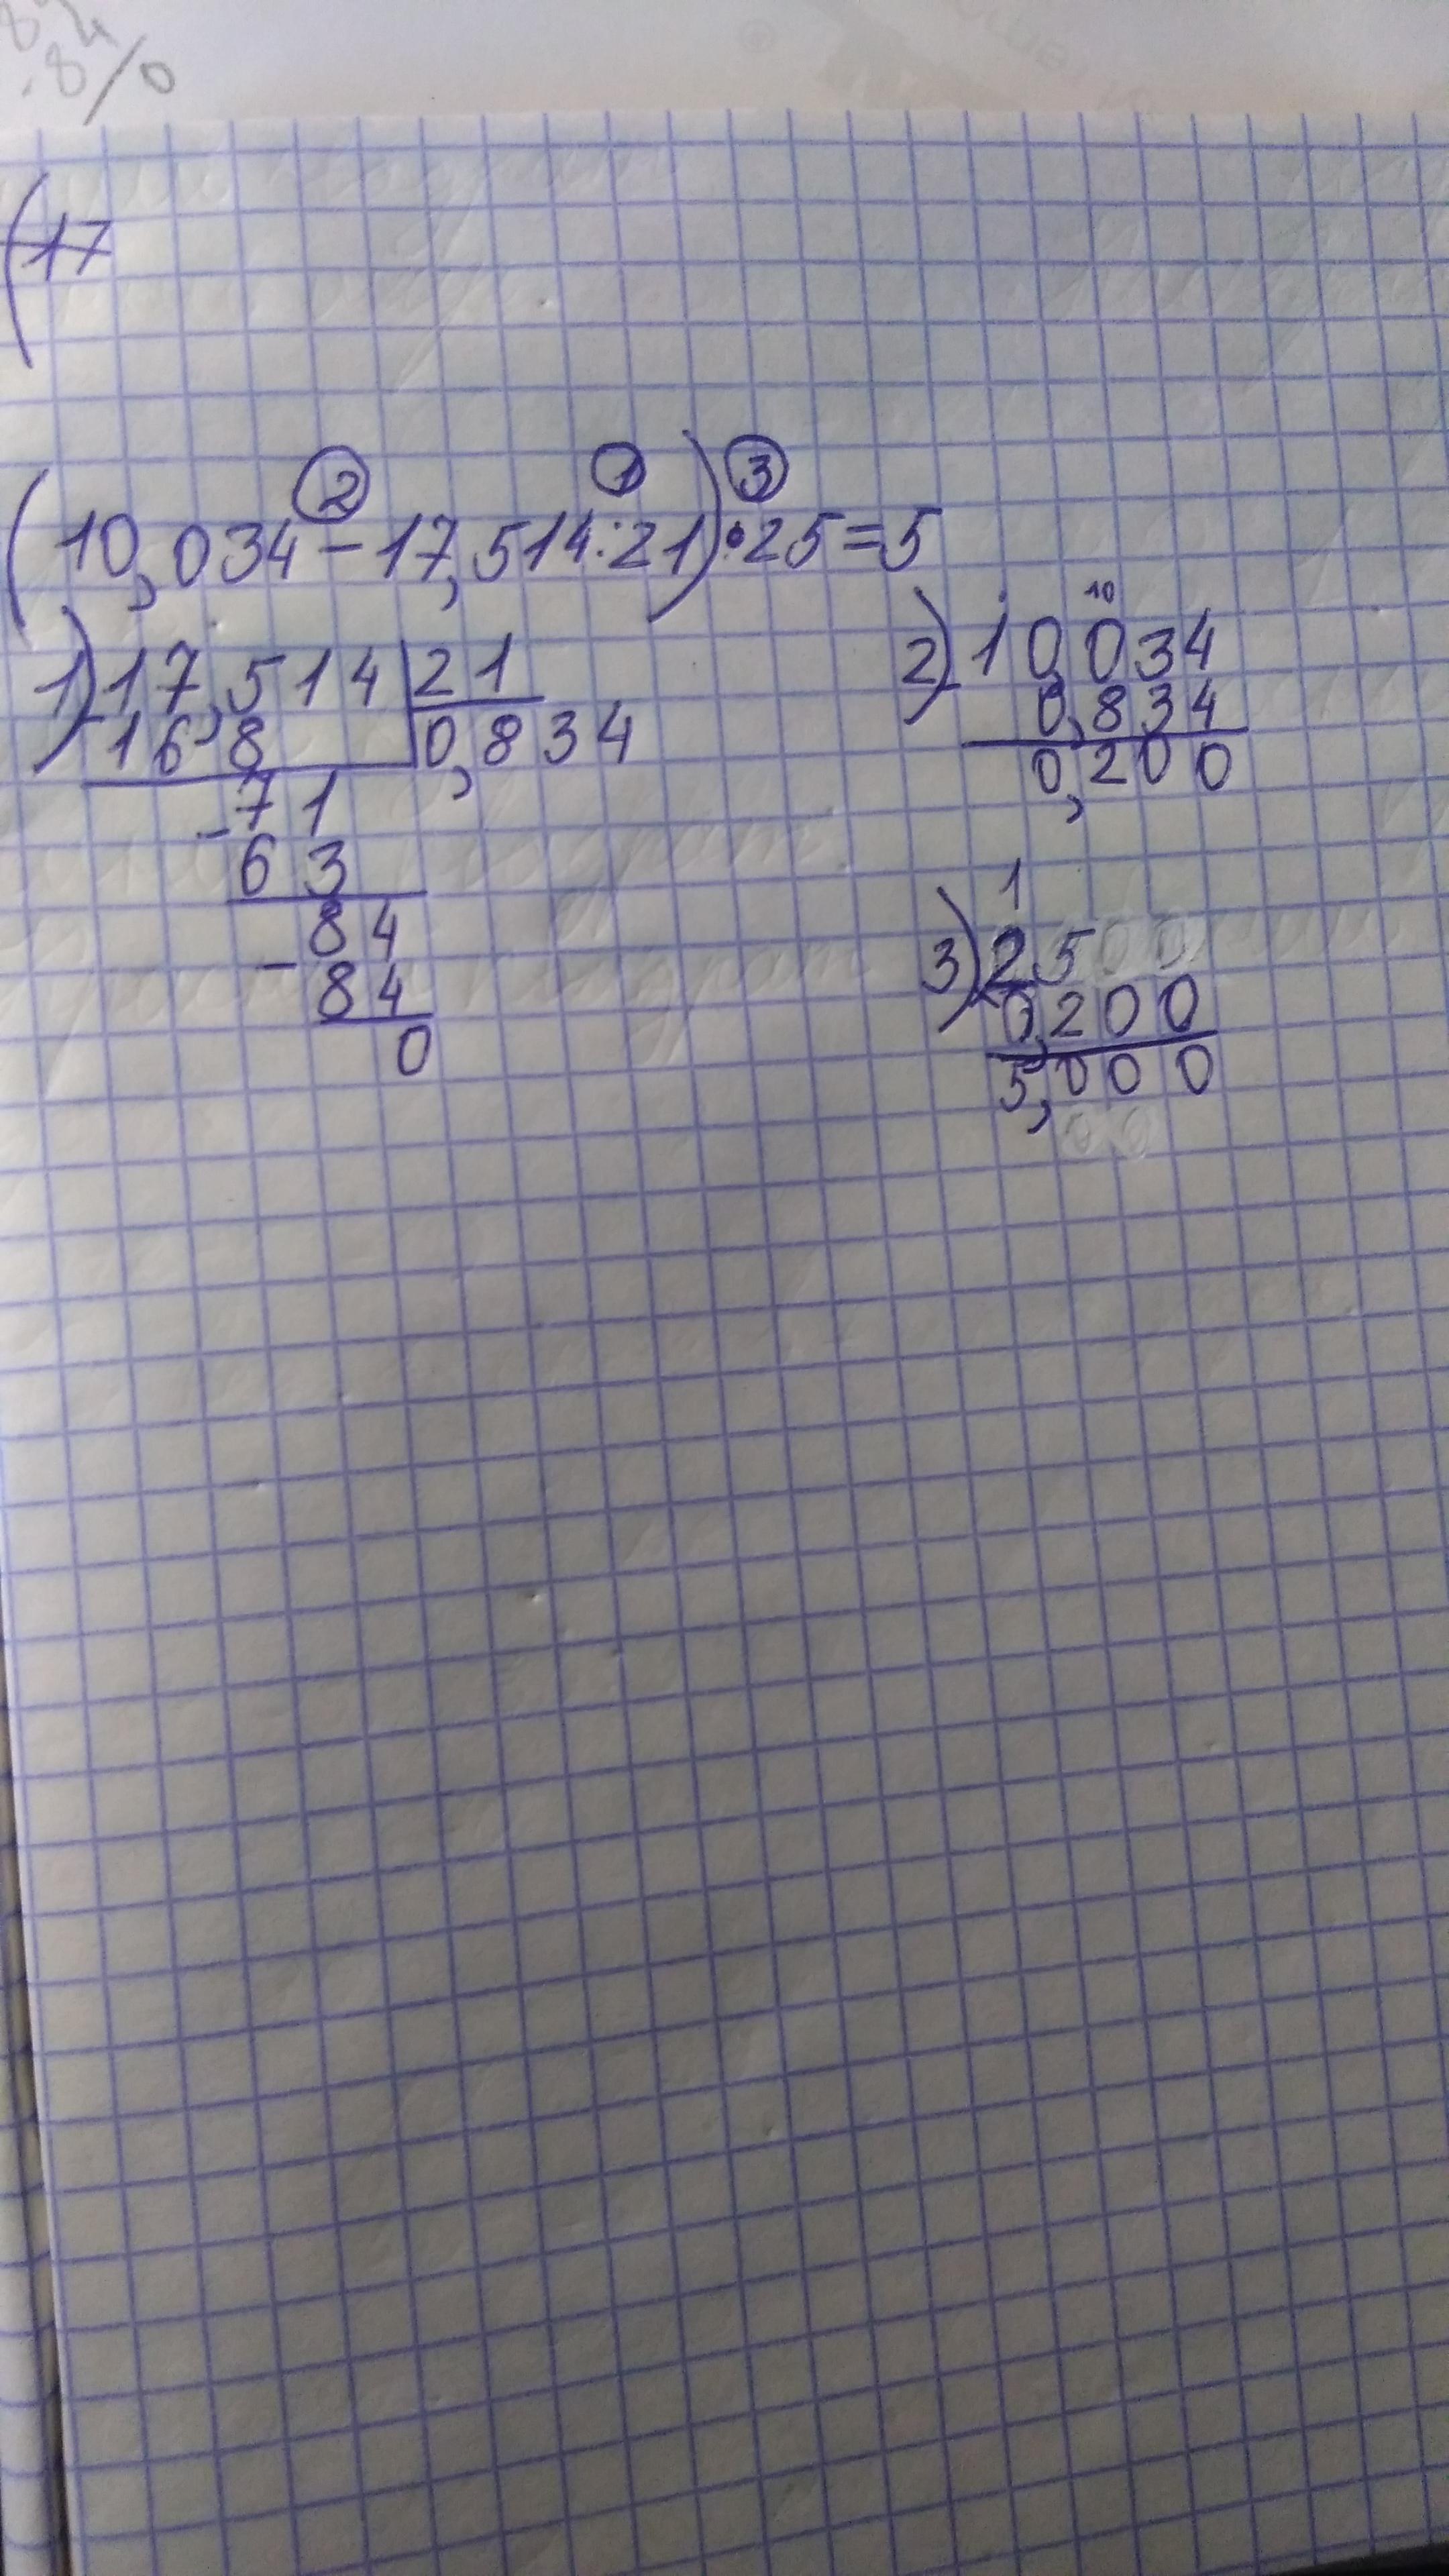 84
.8/0
(17
② ① ③
(10,034-17,514:21)·25=5
1) 17,514 | 21
- 16,8 | 0,834
71
- 63
84
- 84
0
10
2) 10,034
- 0,834
0,200
1
3) 2500
× 0,200
5,000
00